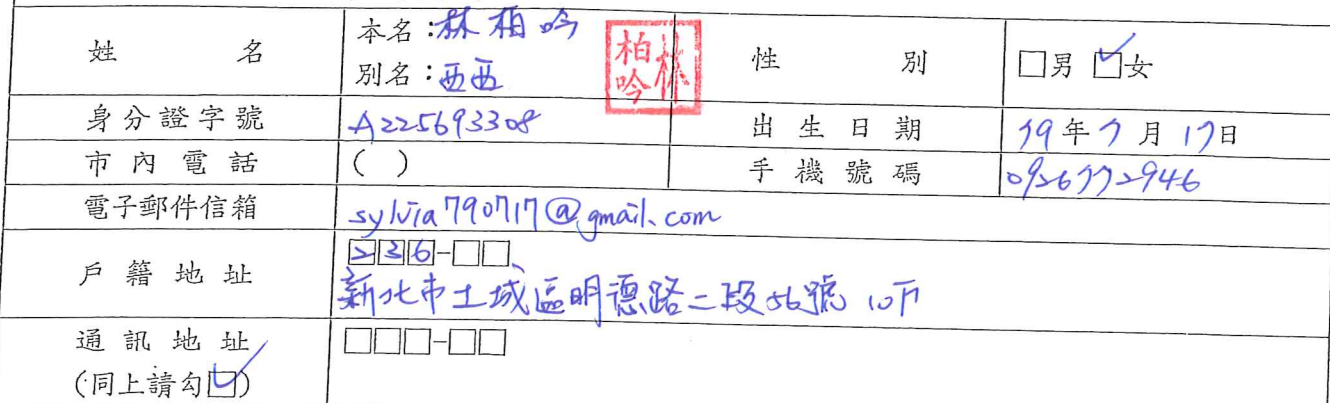 姓 名
本名：林柏吟
別名：西西
柏吟 林
性 別
□男 ☑女
身分證字號
A225693308
出生日期
79年7月17日
市內電話
( )
手機號碼
0926772946
電子郵件信箱
sylvia790717@gmail.com
戶籍地址
236-□□
新北市土城區明德路二段56號10F
通訊地址
(同上請勾☑)
□□□-□□